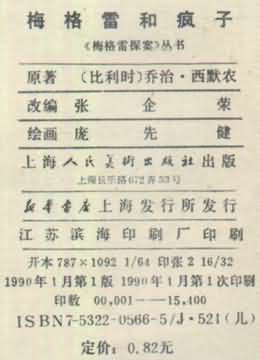 梅格雷和疯子
《梅格雷探案》丛书
原著 (比利时)乔治·西默农
改编 张企荣
绘画 庞先健
上海人民美術出版社出版
上海长乐路672弄33号
新华书店上海发行所发行
江苏滨海印刷厂印刷
开本787×1092 1/64 印张2 16/32
1990年1月第1版 1990年1月第1次印刷
印数 00,001——15,400
ISBN7-5322-0566-5/J·521(儿)
定价: 0.82元